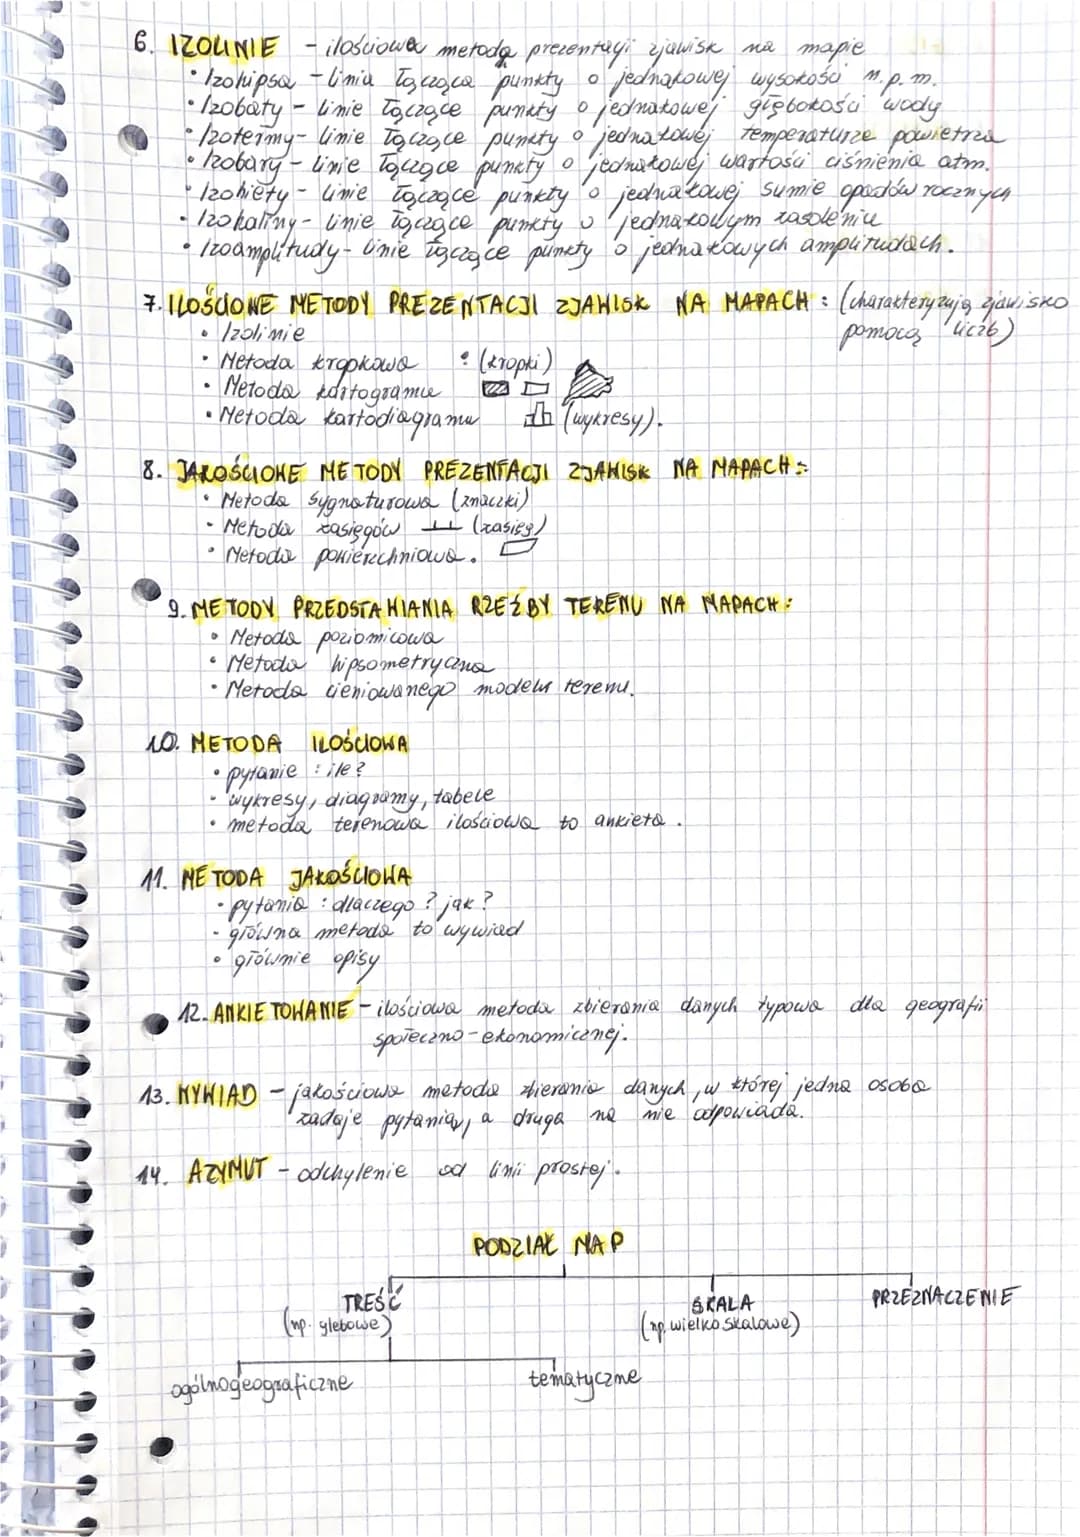 6. IZOLINIE - ilościowa metoda prezentacji zjawisk na mapie
• Izohipsa - linia łącząca punkty o jednakowej wysokości n.p.m.
• Izobaty - linie łączące punkty o jednakowej głębokości wody
• Izotermy - linie łączące punkty o jednakowej temperaturze powietrza
• Izobary - linie łączące punkty o jednakowej wartości ciśnienia atm.
• Izohiety - linie łączące punkty o jednakowej sumie opadów rocznych
• Izohaliny - linie łączące punkty o jednakowym zasoleniu
• Izoamplitudy - linie łączące punkty o jednakowych amplitudach.
7. ILOŚCIOWE METODY PREZENTACJI ZJAWISK NA MAPACH : (charakteryzują zjawisko
pomocą liczb)
• Izolinie
• Metoda kropkowa (kropki)
• Metoda kartogramu
• Metoda kartodiagramu (wykresy).
8. JAKOŚCIOWE METODY PREZENTACJI ZJAWISK NA MAPACH:
• Metoda sygnaturowa (znaczki)
• Metoda zasięgów (zasięg)
• Metoda powierzchniowa.
9. METODY PRZEDSTAWIANIA RZEŹBY TERENU NA MAPACH:
• Metoda poziomicowa
• Metoda hipsometryczna
• Metoda cieniowanego modelu terenu.
10. METODA ILOŚCIOWA
• pytanie : ile?
• wykresy, diagramy, tabele
• metoda terenowa ilościowa to ankieta.
11. METODA JAKOŚCIOWA
• pytania : dlaczego? jak?
• główna metoda to wywiad
• głównie opisy
12. ANKIETOWANIE - ilościowa metoda zbierania danych typowa dla geografii
społeczno-ekonomicznej.
13. WYWIAD - jakościowa metoda zbierania danych, w której jedna osoba
zadaje pytania, a druga na nie odpowiada.
14. AZYMUT - odchylenie od linii prostej.
PODZIAŁ MAP
TREŚĆ SKALA PRZEZNACZENIE
(np. glebowe) (np. wielkoskalowe)
ogólnogeograficzne tematyczne